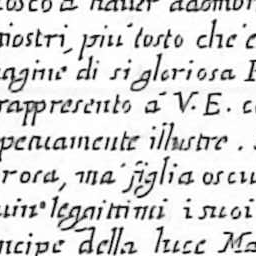 nostri, più tosto che
agine di si gloriosa
rappresento à V. E.
petuamente illustre.
rosa, mà figlia oscu
uin° leggittimi i suoi
ncipe della luce Ma